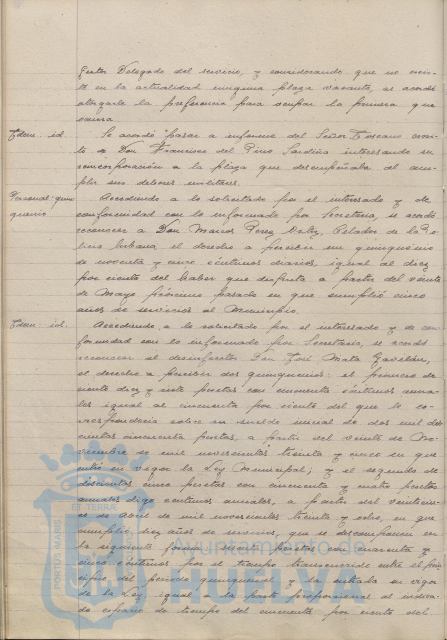 Gestor Delegado del servicio, y considerando que no exis-
te en la actualidad ninguna plaza vacante, se acordó
otorgarle la preferencia para ocupar la primera que
ocurra.
Idem. id. Se acordó pasar a informe del Señor escri-
to de Don Francisco del Pino Sardiña interesando su
reincorporación a la plaza que desempeñaba al cum-
plir sus deberes militares.
Personal: quin- Accediendo a lo solicitado por el interesado y de
quenio conformidad con lo informado por Secretaría, se acordó
reconocer a Don Marcos Perez Celador de la Po-
licia Urbana, el derecho a percibir un quinquenio
de noventa y cinco céntimos diarios, igual al diez
por ciento del haber que disfruta a partir del veinte
de Mayo próximo pasado en que cumplió cinco
años de servicios al Municipio.
Idem. id. Accediendo a lo solicitado por el interesado y de con-
formidad con lo informado por Secretaría, se acordó
reconocer al desinfector Don José Mata Gavilán,
el derecho a percibir dos quinquenios: el primero de
ciento diez y siete pesetas con cincuenta céntimos anua-
les igual al cincuenta por ciento del que le co-
rrespondería sobre su sueldo anual de dos mil dos-
cientas cincuenta pesetas, a partir del veinte de No-
viembre de mil novecientos treinta y cinco en que
entró en vigor la Ley Municipal; y el segundo de
doscientas cinco pesetas con cincuenta y cuatro pesetas
anuales digo centimos anuales, a partir del
de Abril de mil novecientos treinta y ocho, en que
cumplió diez años de servicios, que se descomponen en
la siguiente forma: pesetas con cuarenta y
cinco céntimos por el tiempo transcurrido entre el prin-
cipio del periodo quinquenal y la entrada en vigor
de la Ley, igual a la parte proporcional al indica-
do espacio de tiempo del cincuenta por ciento del
PORTUS MARIS ET TERRAE
Ayuntamiento de
HUELVA